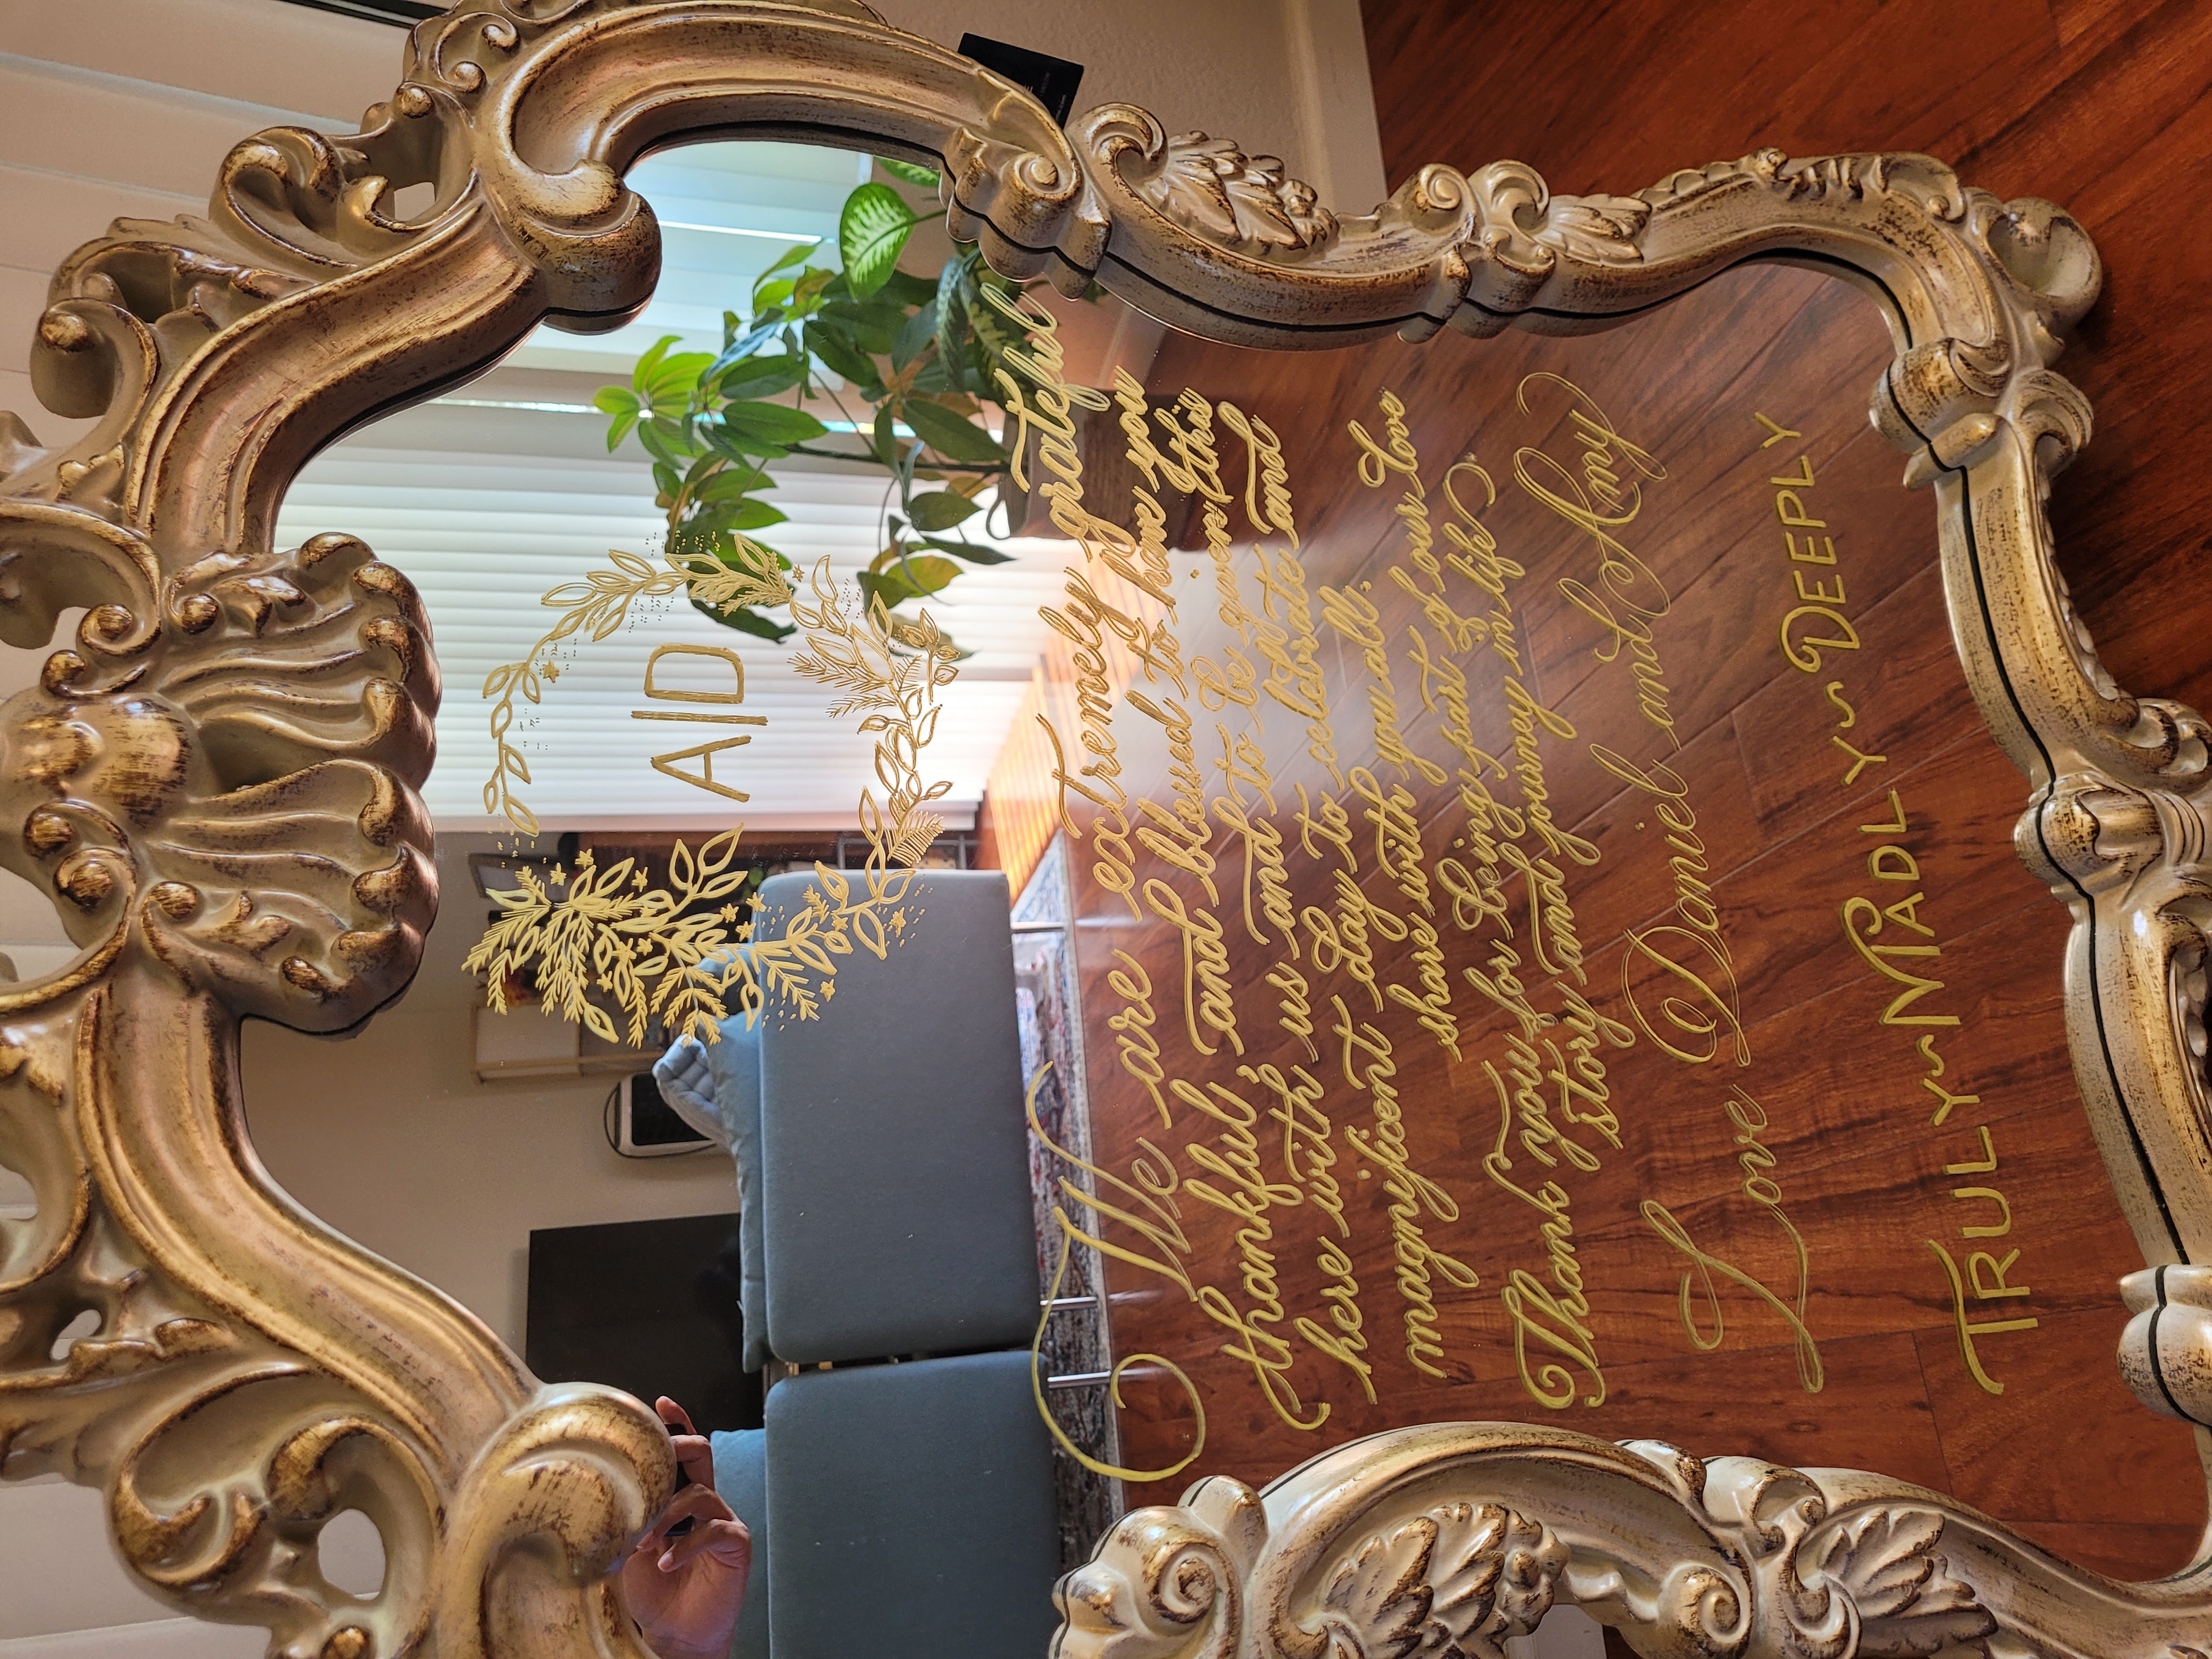 A|D
We are extremely grateful
thankful, and blessed to have you
here with us and to be given this
magnificent day to celebrate and
share with you all.
Thank you for being part of our love
story and journey in life
Love Daniel and Amy
TRULY~MADLY~DEEPLY